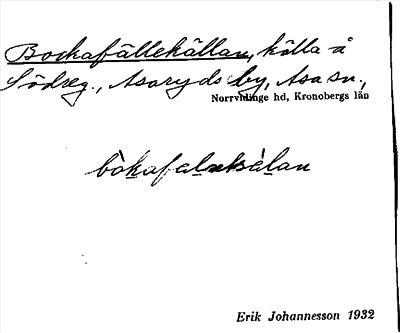 Bockafällekällan, källa å
Södreg., Asaryds by, Asa sn.,
Norrvidinge hd, Kronobergs län
Erik Johannesson 1932